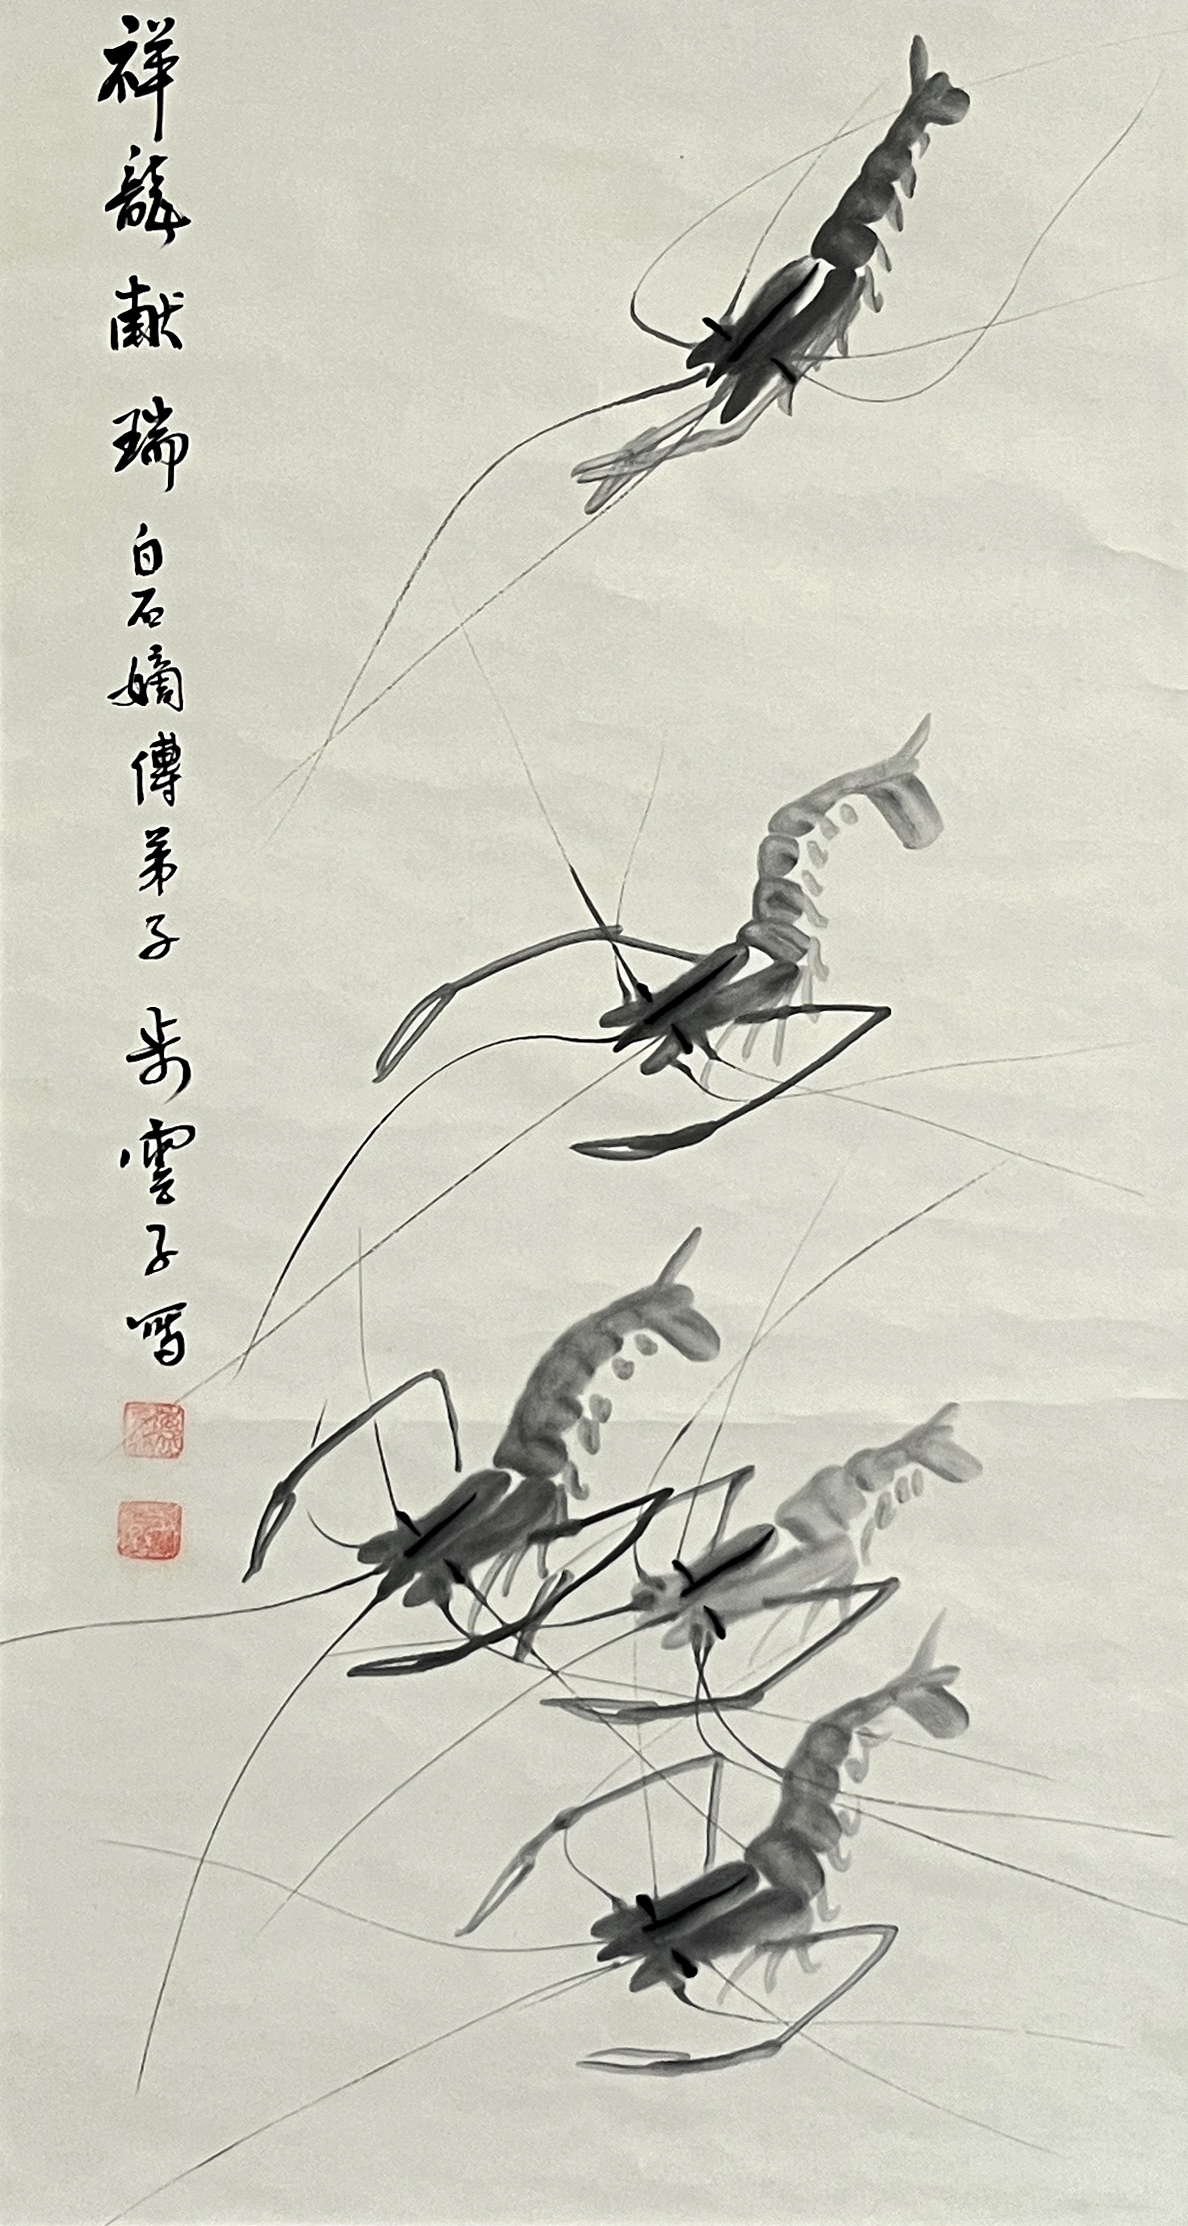 祥龍獻瑞 白石嫡傳弟子 步雲子寫